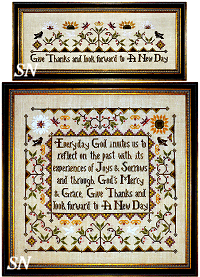 SN
Give Thanks and look forward to A New Day
Everyday God invites us to
reflect on the past with its
experiences of Joys & Sorrows
and through God's Mercy
& Grace, Give Thanks and
look forward to A New Day
SN